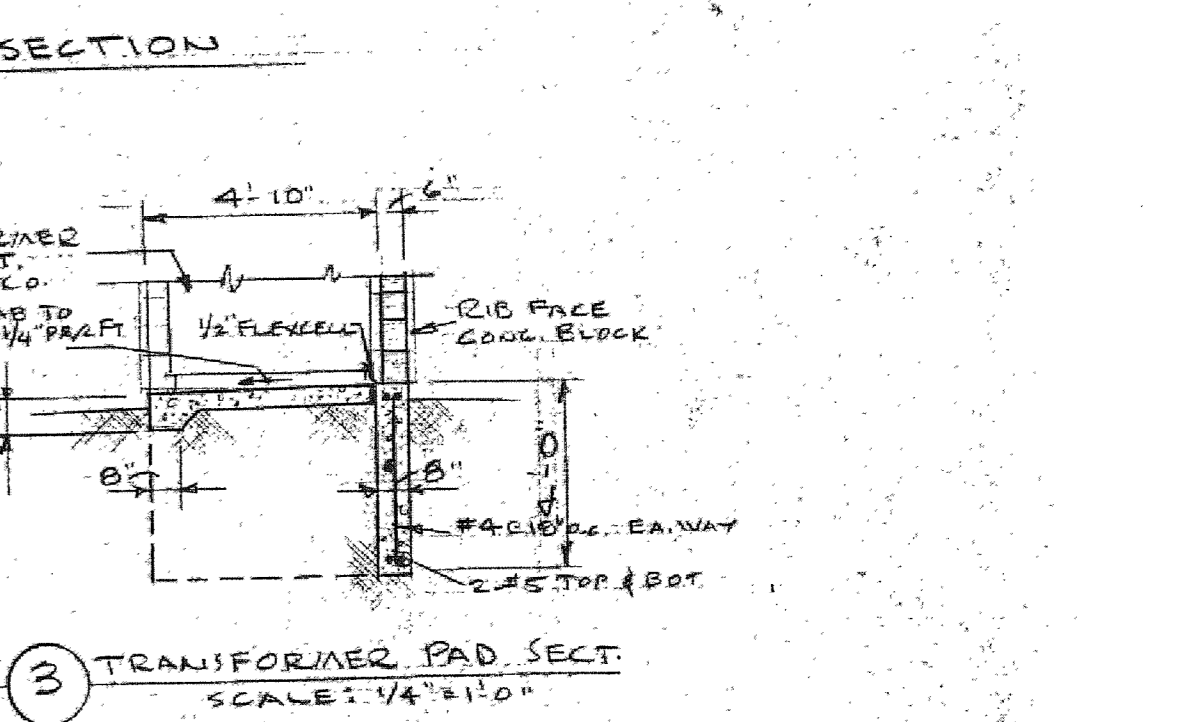 SECTION
4'-10"
6"
RMER
T.
CO.
AB TO
1/4" PER FT
1/2" FLEXCELL
RIB FACE
CONC. BLOCK
8"
8"
4'-0"
#4 @ 18" O.C. EA. WAY
2-#5 TOP & BOT
3
TRANSFORMER PAD SECT.
SCALE: 1/4"=1'-0"